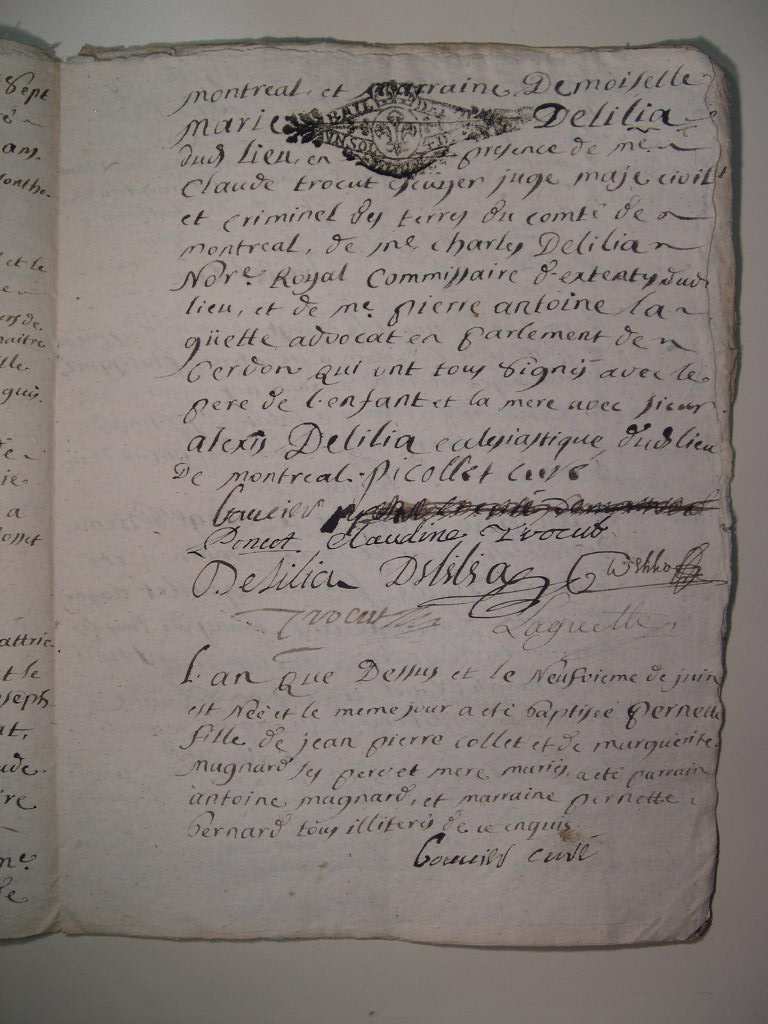 montreal, et marraine Demoiselle
marie Delilia
dud lieu, en presence de me
Claude trocut escuyer juge maje civil
et criminel des terres du comté de
montreal, de me charles Delilia
Nore Royal Commissaire d'extentes dud
lieu, et de me pierre antoine la
güette advocat en parlement de
Cerdon qui ont tous signés avec le
pere de l'enfant et la mere avec sieur
alexis Delilia eclesiastique dud lieu
De montreal. Picollet curé
Goueier
Poncet Claudine Trocut
Delilia Delilia
Trocut Laguette
L'an que Dessus et le Neufvieme de juin
est Née et le meme jour a eté baptisée perne
fille de jean pierre collet et de marguerite
mugnard ses pere et mere mariés, a eté parrain
antoine magnard, et marraine pernette
bernard tous illiterés de ce enquis
Goueier curé
Sept
ans.
et le
guis.
ie
a
attric
t le
seph
at,
ude.
ire